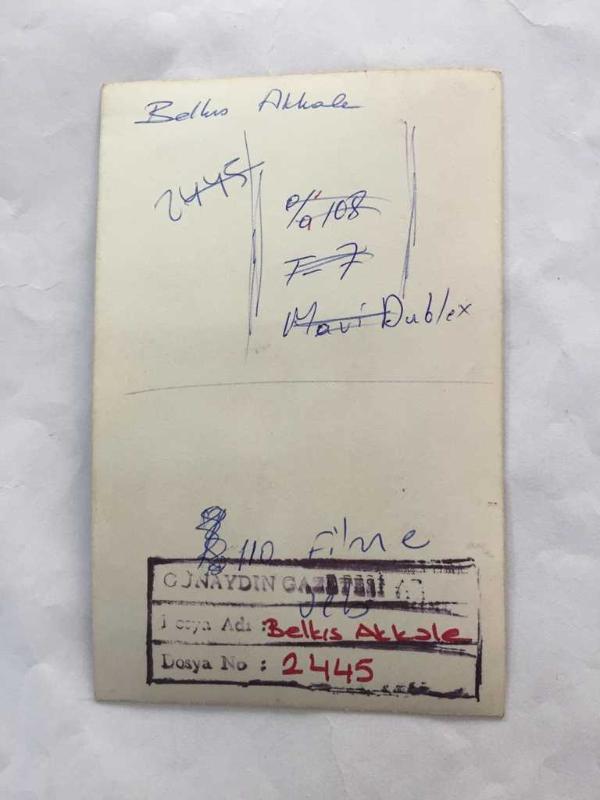 Belkıs Akkale
2445
% 108
F=7
Mavi Dublex
110 Filme
GÜNAYDIN GAZETESİ
Dosya Adı : Belkıs Akkale
Dosya No : 2445